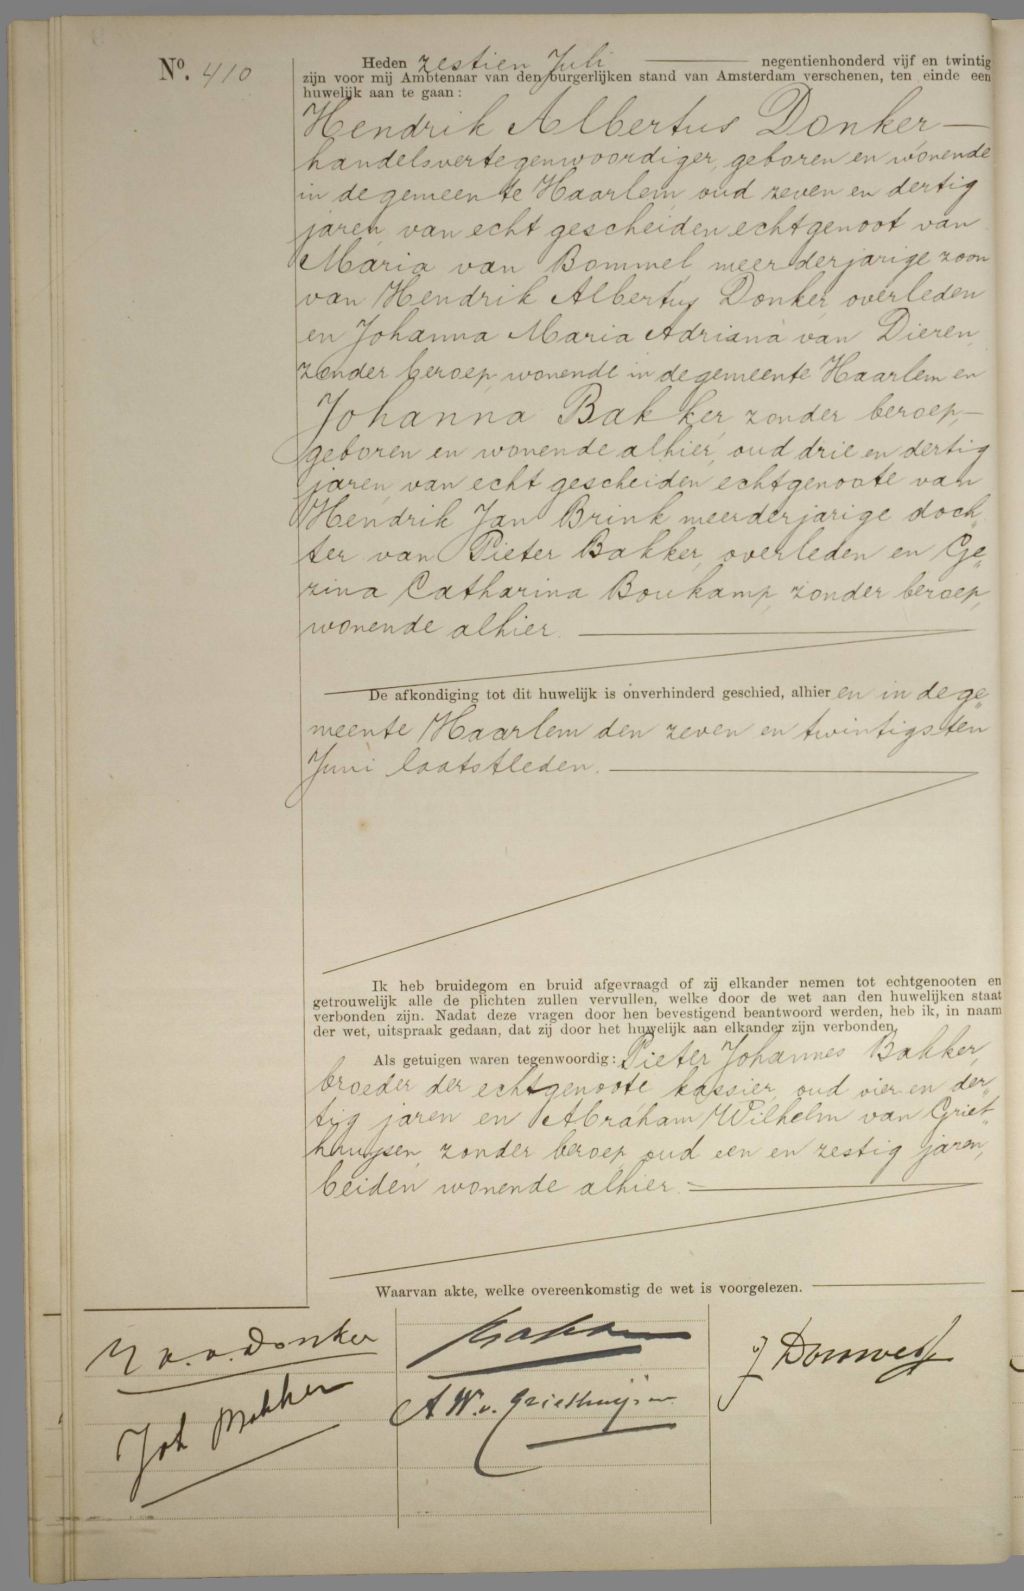 Nº. 410
Heden zestien Juli negentienhonderd vijf en twintig
zijn voor mij Ambtenaar van den burgerlijken stand van Amsterdam verschenen, ten einde een
huwelijk aan te gaan:
Hendrik Albertus Donker
handelsvertegenwoordiger, geboren en wonende
in de gemeente Haarlem, oud zeven en dertig
jaren, van echt gescheiden echtgenoot van
Maria van Bommel, meerderjarige zoon
van Hendrik Albertus Donker, overleden
en Johanna Maria Adriana van Dieren,
zonder beroep, wonende in de gemeente Haarlem en
Johanna Bakker, zonder beroep,
geboren en wonende alhier, oud drie en dertig
jaren, van echt gescheiden echtgenoote van
Hendrik Jan Brink meerderjarige doch„
ter van Pieter Bakker, overleden en Ge„
zina Catharina Boukamp, zonder beroep,
wonende alhier.
De afkondiging tot dit huwelijk is onverhinderd geschied, alhier en in de ge„
meente Haarlem den zeven en twintigsten
Juni laatstleden.
Ik heb bruidegom en bruid afgevraagd of zij elkander nemen tot echtgenooten en
getrouwelijk alle de plichten zullen vervullen, welke door de wet aan den huwelijken staat
verbonden zijn. Nadat deze vragen door hen bevestigend beantwoord werden, heb ik, in naam
der wet, uitspraak gedaan, dat zij door het huwelijk aan elkander zijn verbonden.
Als getuigen waren tegenwoordig: Pieter Johannes Bakker,
broeder der echtgenoote kassier, oud vier en der„
tig jaren en Abraham Wilhelm van Griet„
huysen, zonder beroep, oud een en zestig jaren,
beiden wonende alhier.
Waarvan akte, welke overeenkomstig de wet is voorgelezen.
Donker
Bakker
J Douwes
Joh Bakker
A W. v. Griethuijsen